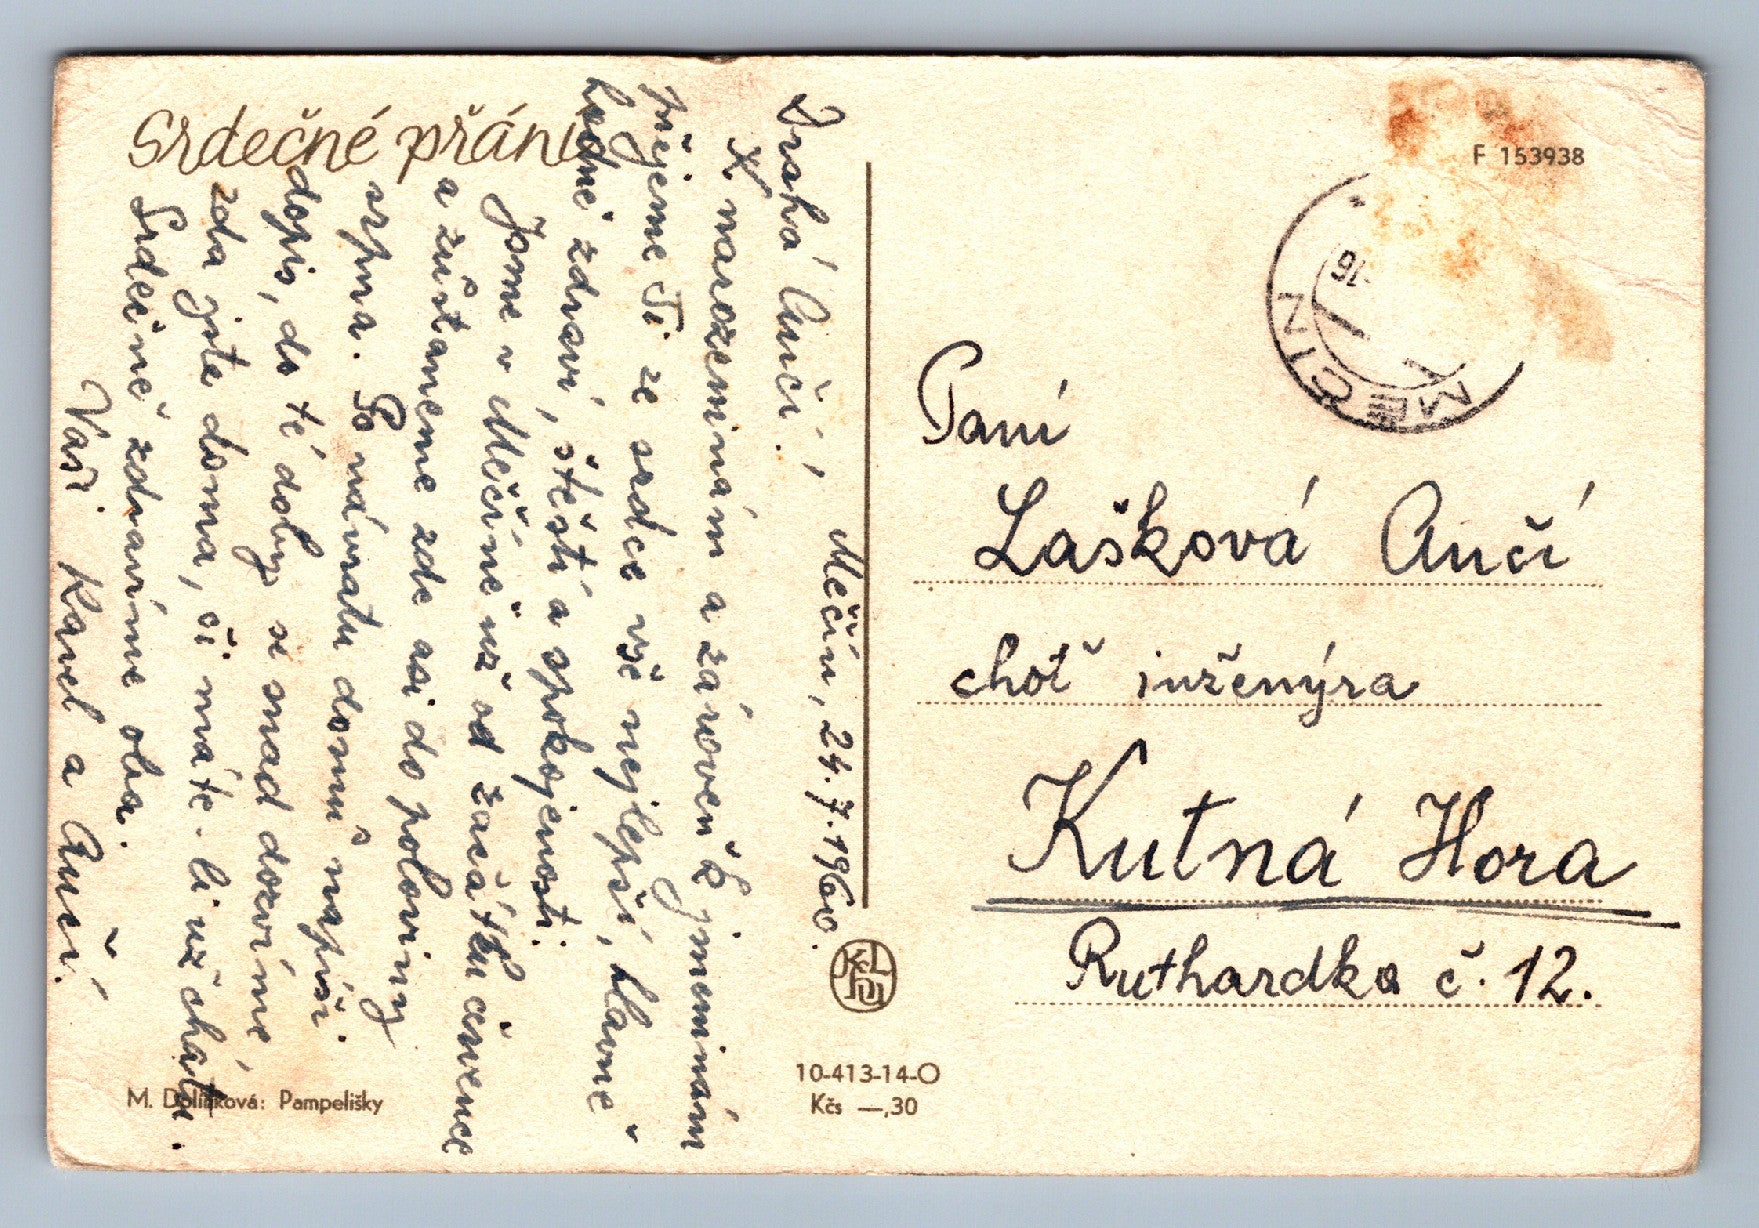 Srdečné přání
Mečín, 24.7.1960.
Drahá Ančí!,
K narozeninám a zároveň k jmeninám
přejeme Ti ze srdce vše nejlepší, hlavně
hodně zdraví, štěstí a spokojenosti.
Jsme v Mečíně už od začátku července
a zůstaneme zde asi do poloviny
srpna. Po návratu domů napíši
dopis, do té doby se snad dozvíme,
zda jste doma, či máte-li už chatu.
Srdečně zdravíme oba.
Vaši Karel a Anči.
M. Dolínková: Pampelišky
10-413-14-O
Kčs —,30
F 153938
MEČÍN
Paní
Lašková Ančí
choť inženýra
Kutná Hora
Ruthardka č. 12.